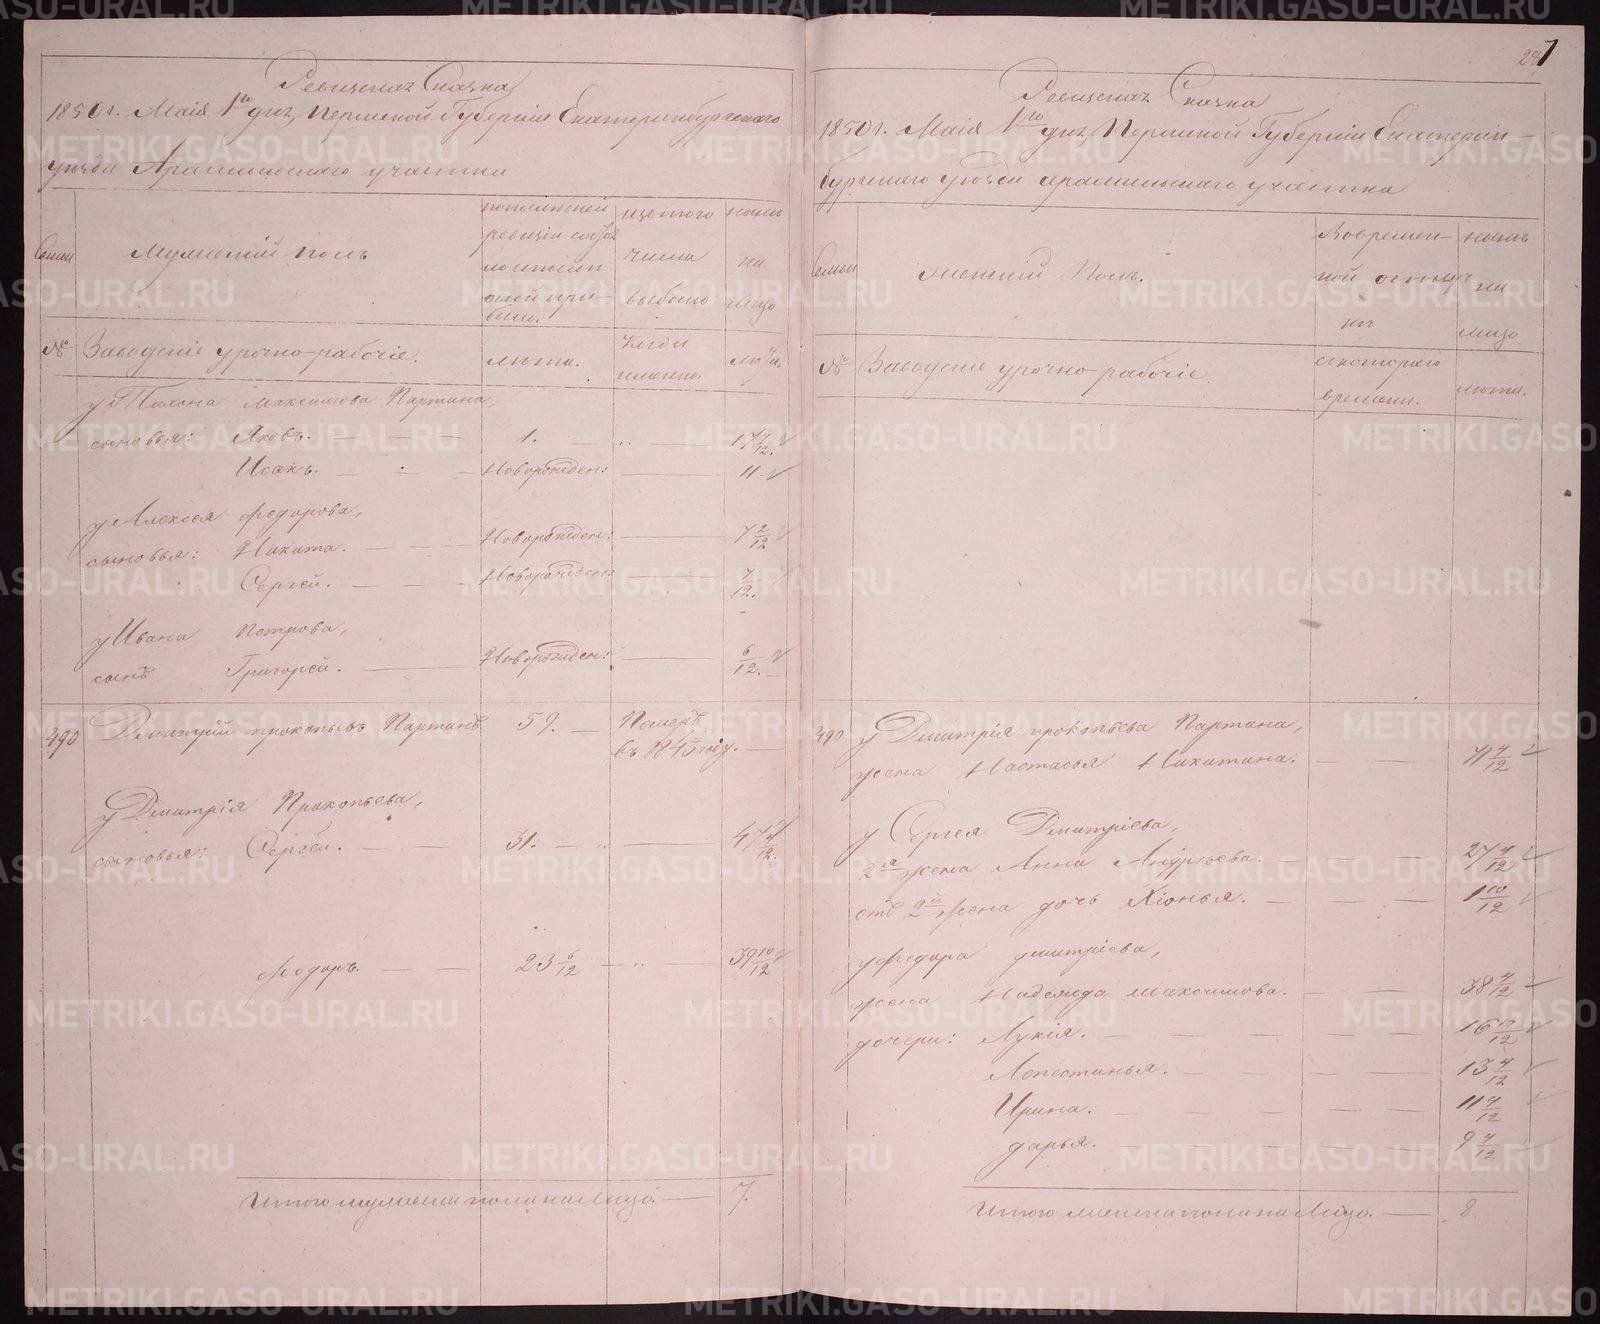 Ревизская Сказка
1850 г. Маія 1го дня, Пермской Губерніи Екатеринбургскаго
уѣзда Арамильскаго участка
Семьи
Мужескій полъ
по послѣдней ревизіи состояло и послѣ оной прибыло.
изъ того числа выбыло
нынѣ на лицо
№
Заводскіе урочно-рабочіе.
лѣта.
Когда именно.
лѣта.
у Максимова Партина,
сыновья: Яковъ. — — — 1. — „ — 17 7/12.
Исакъ. — - — Новорожден: — 11.
у Алексея Федорова,
сыновья: Никита. — — Новорожден: — 7 2/12
Сергей. — — — Новорожден: — 7/12.
у Ивана Петрова,
сынъ Григорей. — Новорожден: — 6/12.
490 Дмитрий Прокопьевъ Партинъ 59. — Померъ
въ 1845 году. —
у Дмитрія Прокопьева,
сыновья: Сергѣй. — — 31. — „ — 47 4/12.
Федоръ. — — 23 6/12 — „ — 39 10/12
Итого мужеска пола на Лицо. — 7.
287
Ревизская Сказка
1850 г. Маія 1го дня, Пермской Губерніи Екатерин-
бургскаго уѣзда арамильскаго участка
Семьи
Женскій Полъ.
Во временной отлучкѣ
нынѣ на лицо
№
Заводскіе урочно-рабочіе
съ котораго времени.
лѣта.
490 у Дмитрія прокопьева Партина,
жена Настасья Никитина. — — 71 4/12
у Сергея Дмитріева,
2я жена Анна Андреева. — — — 27 4/12
отъ 2й жены дочь Хіонья. — — — 1 10/12
у Федора дмитріева,
жена Надежда Максимова. — — 38 4/12
дочери: Лукія. — — — — 16 10/12
— — — 13 4/12
Ирина. — — — — 11 4/12
дарья. — — — — 9 4/12
Итого женска пола на Лицо. — 8
METRIKI.GASO-URAL.RU